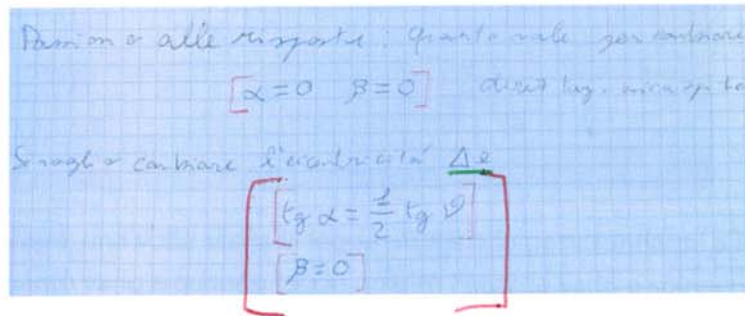 Passiamo alle risposte: quanto vale per cambiare
[α=0 β=0] tang.
Se voglio cambiare l'eccentricità Δe
[tg α = 1/2 tg ϑ]
[β=0]